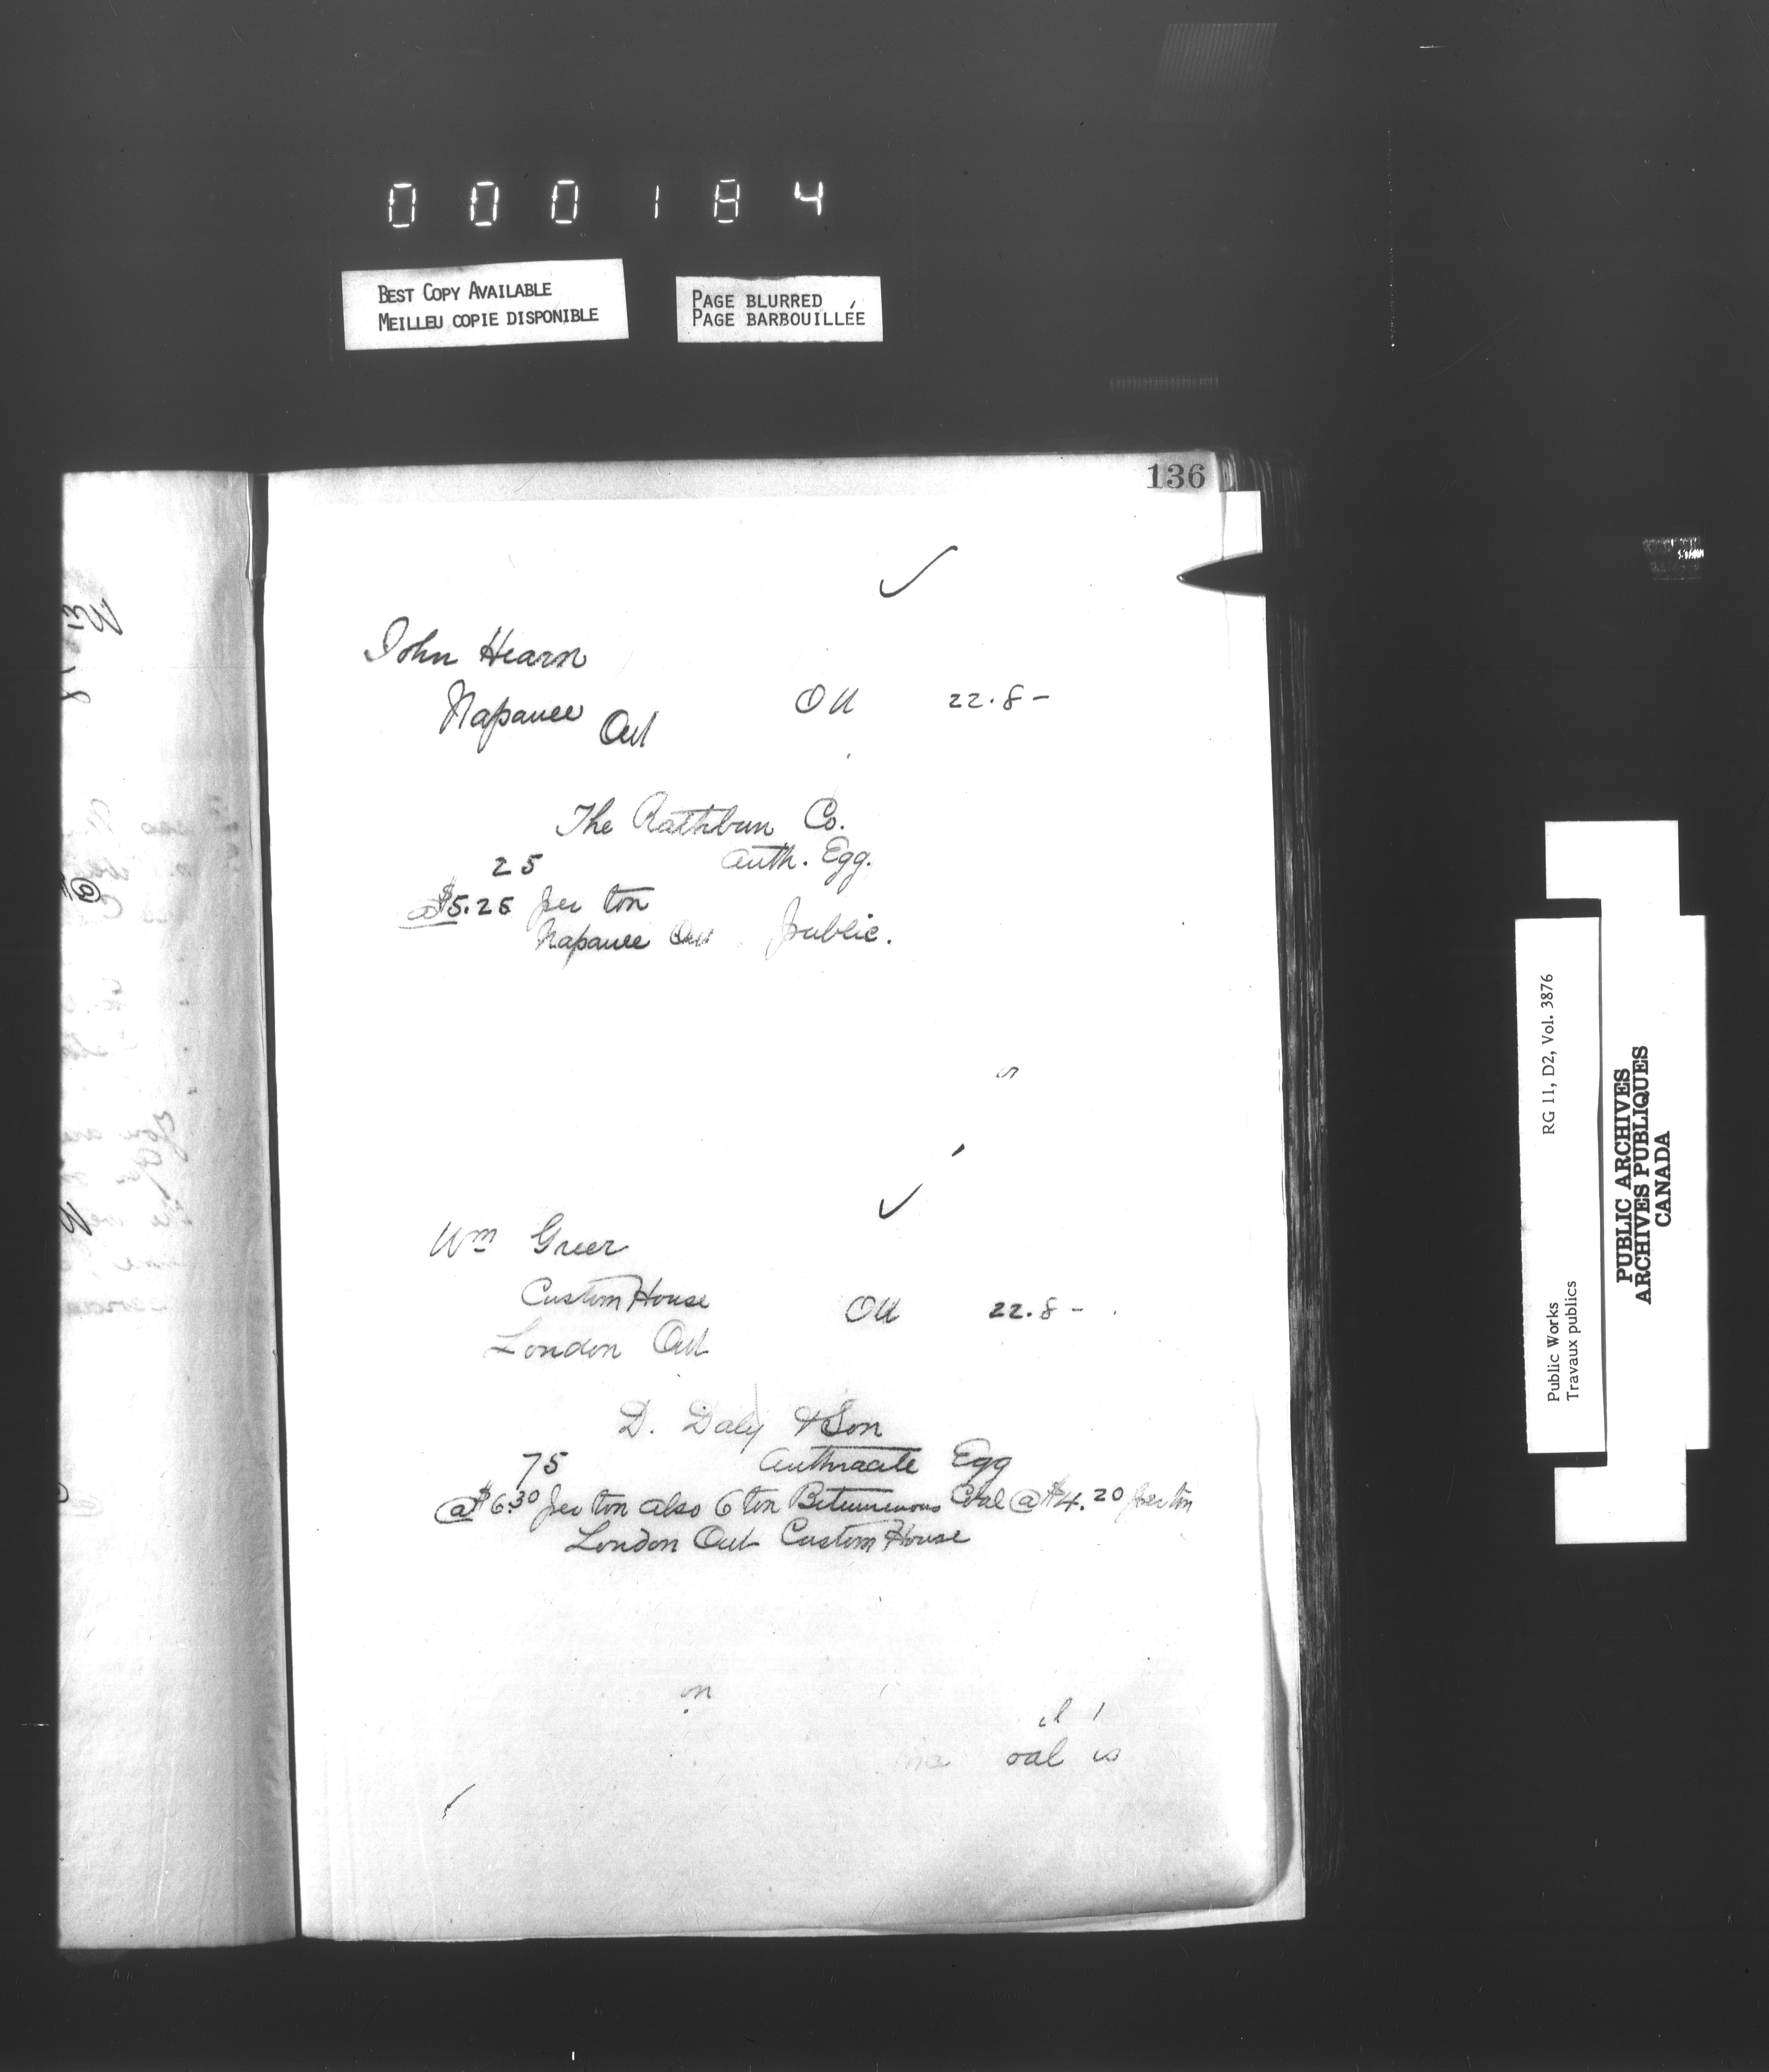 000184
BEST COPY AVAILABLE
MEILLEU COPIE DISPONIBLE
PAGE BLURRED
PAGE BARBOUILLÉE
136
John Hearn
Napanee Ont
Ott 22.8-
The Rathbun Co.
25 Anth. Egg.
@ $5.25 per ton
Napanee Ont public.
Wm Greer
Custom House
Ott 22.8-
London Ont
D. Daly & Son
75 Anthracite Egg
@ $6.30 per ton also 6 ton Bitumenous Coal @ $4.20 per ton
London Ont Custom House
on
oal is
RG 11, D2, Vol. 3876
Public Works
Travaux publics
PUBLIC ARCHIVES
ARCHIVES PUBLIQUES
CANADA